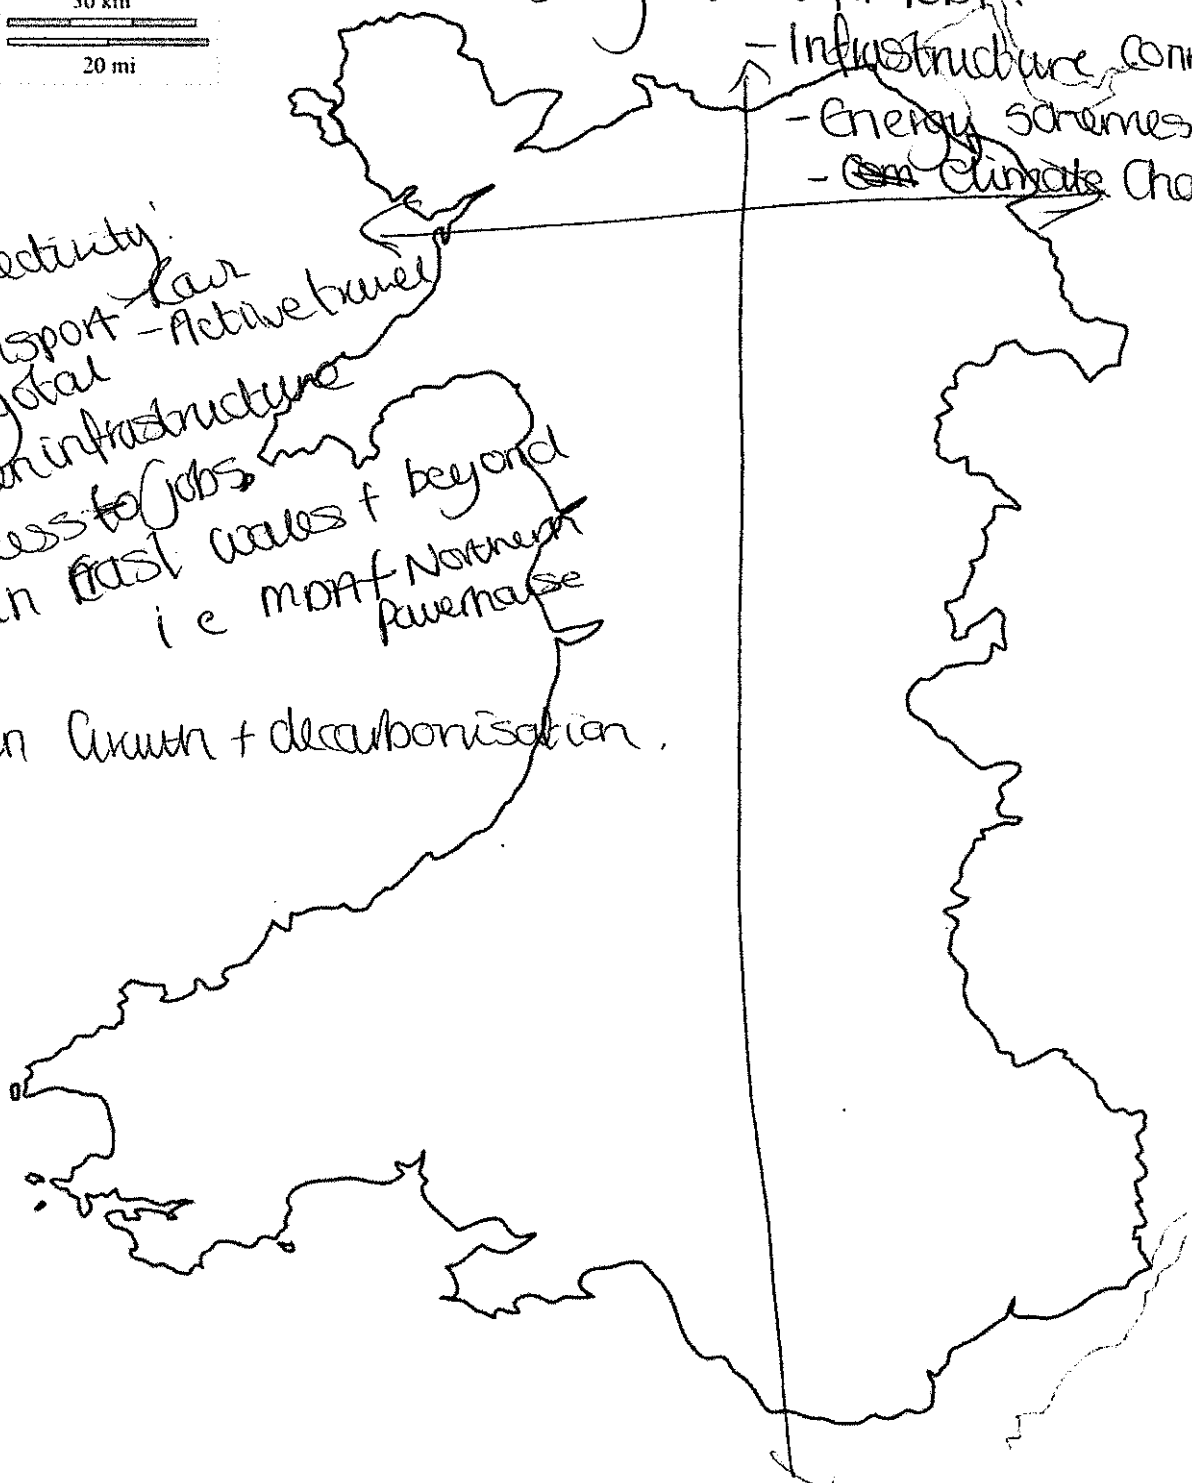 30 km
20 mi
- Infrastructure con
- Energy schemes
- Climate Cha
ectivity:
sport - Rail
- Active travel
gital
infrastructure
cess to jobs
n East Wales + beyond
i e MDA + Northern
Powerhouse
n Growth + decarbonisation.